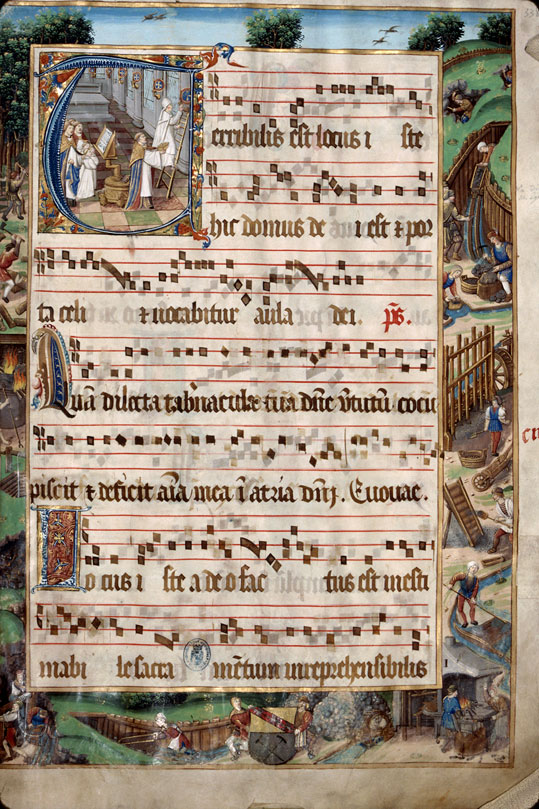 Terribilis est locus i ste
hic domus de i est ⁊ por
ta celi ⁊ uocabitur aula dei. p̄s.
Quā dilecta tabn̄acula tua dn̄e v̄tutū cōcu
piscit ⁊ deficit aīa mea ī atria dn̄j. Euouae.
Locus i ste a deo fac tus est inesti
mabi le sacra mētum inreprehensibilis